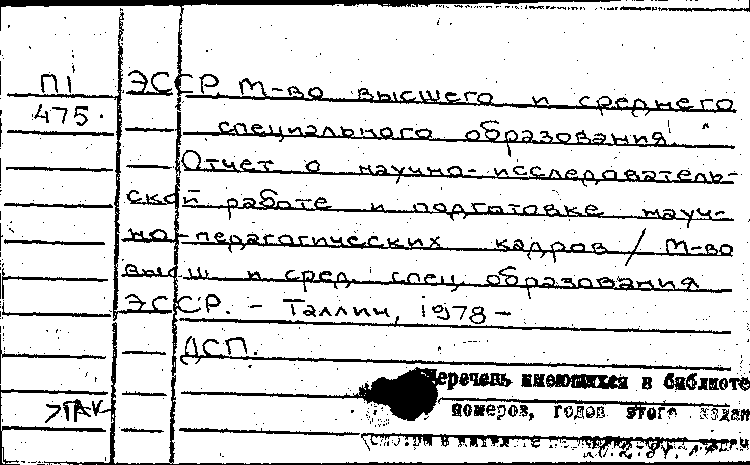 П1 ЭССР М-во высшего и среднего
475. специального образования.
Отчет о научно-исследователь-
ской работе и подготовке науч-
но-педагогических кадров / М-во
высш и сред. спец. образования
ЭССР. - Таллин, 1978 -
ДСП.
Перечень имеющихся в библиоте
номеров, годов этого издан
смотри в каталоге